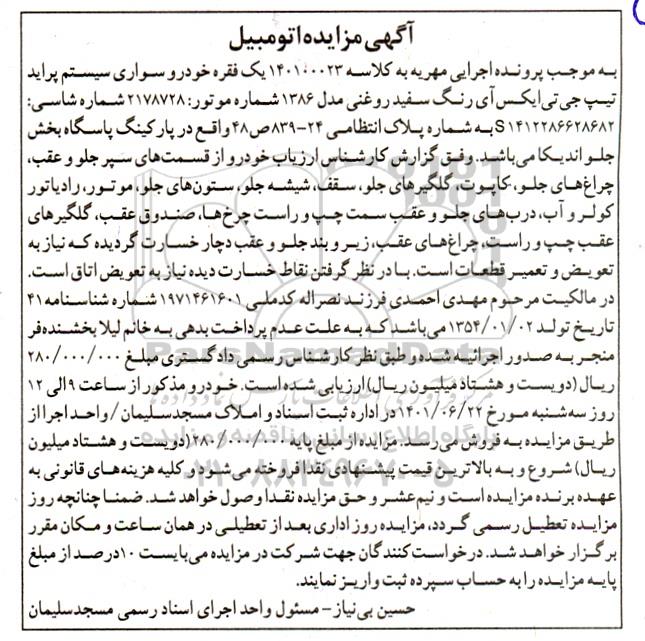 آگهی مزایده اتومبیل
به موجب پرونده اجرایی مهریه به کلاسه ۱۴۰۱۰۰۰۲۳ یک فقره خودرو سواری سیستم پراید
تیپ جی تی ایکس آی رنگ سفید روغنی مدل ۱۳۸۶ شماره موتور: ۲۱۷۸۷۲۸ شماره شاسی:
S۱۴۱۲۲۸۶۶۲۸۶۸۲ به شماره پلاک انتظامی ۲۴-۸۳۹ص۴۸ واقع در پارکینگ پاسگاه بخش
جلو اندیکا می‌باشد. وفق گزارش کارشناس ارزیاب خودرو از قسمت‌های سپر جلو و عقب،
چراغ‌های جلو، کاپوت، گلگیرهای جلو، سقف، شیشه جلو، ستون‌های جلو، موتور، رادیاتور
کولر و آب، درب‌های جلو و عقب سمت چپ و راست چرخ‌ها، صندوق عقب، گلگیرهای
عقب چپ و راست، چراغ‌های عقب، زیر و بند جلو و عقب دچار خسارت گردیده که نیاز به
تعویض و تعمیر قطعات است. با در نظر گرفتن نقاط خسارت دیده نیاز به تعویض اتاق است.
در مالکیت مرحوم مهدی احمدی فرزند نصراله کدملی ۱۹۷۱۴۶۱۶۰۱ شماره شناسنامه ۴۱
تاریخ تولد ۱۳۵۴/۰۱/۰۲ می‌باشد که به علت عدم پرداخت بدهی به خانم لیلا بخشنده‌فر
منجر به صدور اجرائیه شده و طبق نظر کارشناس رسمی دادگستری مبلغ ۲۸۰/۰۰۰/۰۰۰
ریال (دویست و هشتاد میلیون ریال) ارزیابی شده است. خودرو مذکور از ساعت ۹ الی ۱۲
روز سه‌شنبه مورخ ۱۴۰۱/۰۶/۲۲ در اداره ثبت اسناد و املاک مسجدسلیمان/ واحد اجرا از
طریق مزایده به فروش می‌رسد. مزایده از مبلغ پایه ۲۸۰/۰۰۰/۰۰۰ (دویست و هشتاد میلیون
ریال) شروع و به بالاترین قیمت پیشنهادی نقدا فروخته می‌شود و کلیه هزینه‌های قانونی به
عهده برنده مزایده است و نیم‌عشر و حق مزایده نقدا وصول خواهد شد. ضمنا چنانچه روز
مزایده تعطیل رسمی گردد، مزایده روز اداری بعد از تعطیلی در همان ساعت و مکان مقرر
برگزار خواهد شد. درخواست کنندگان جهت شرکت در مزایده می‌بایست ۱۰درصد از مبلغ
پایه مزایده را به حساب سپرده ثبت واریز نمایند.
حسین بی‌نیاز - مسئول واحد اجرای اسناد رسمی مسجدسلیمان